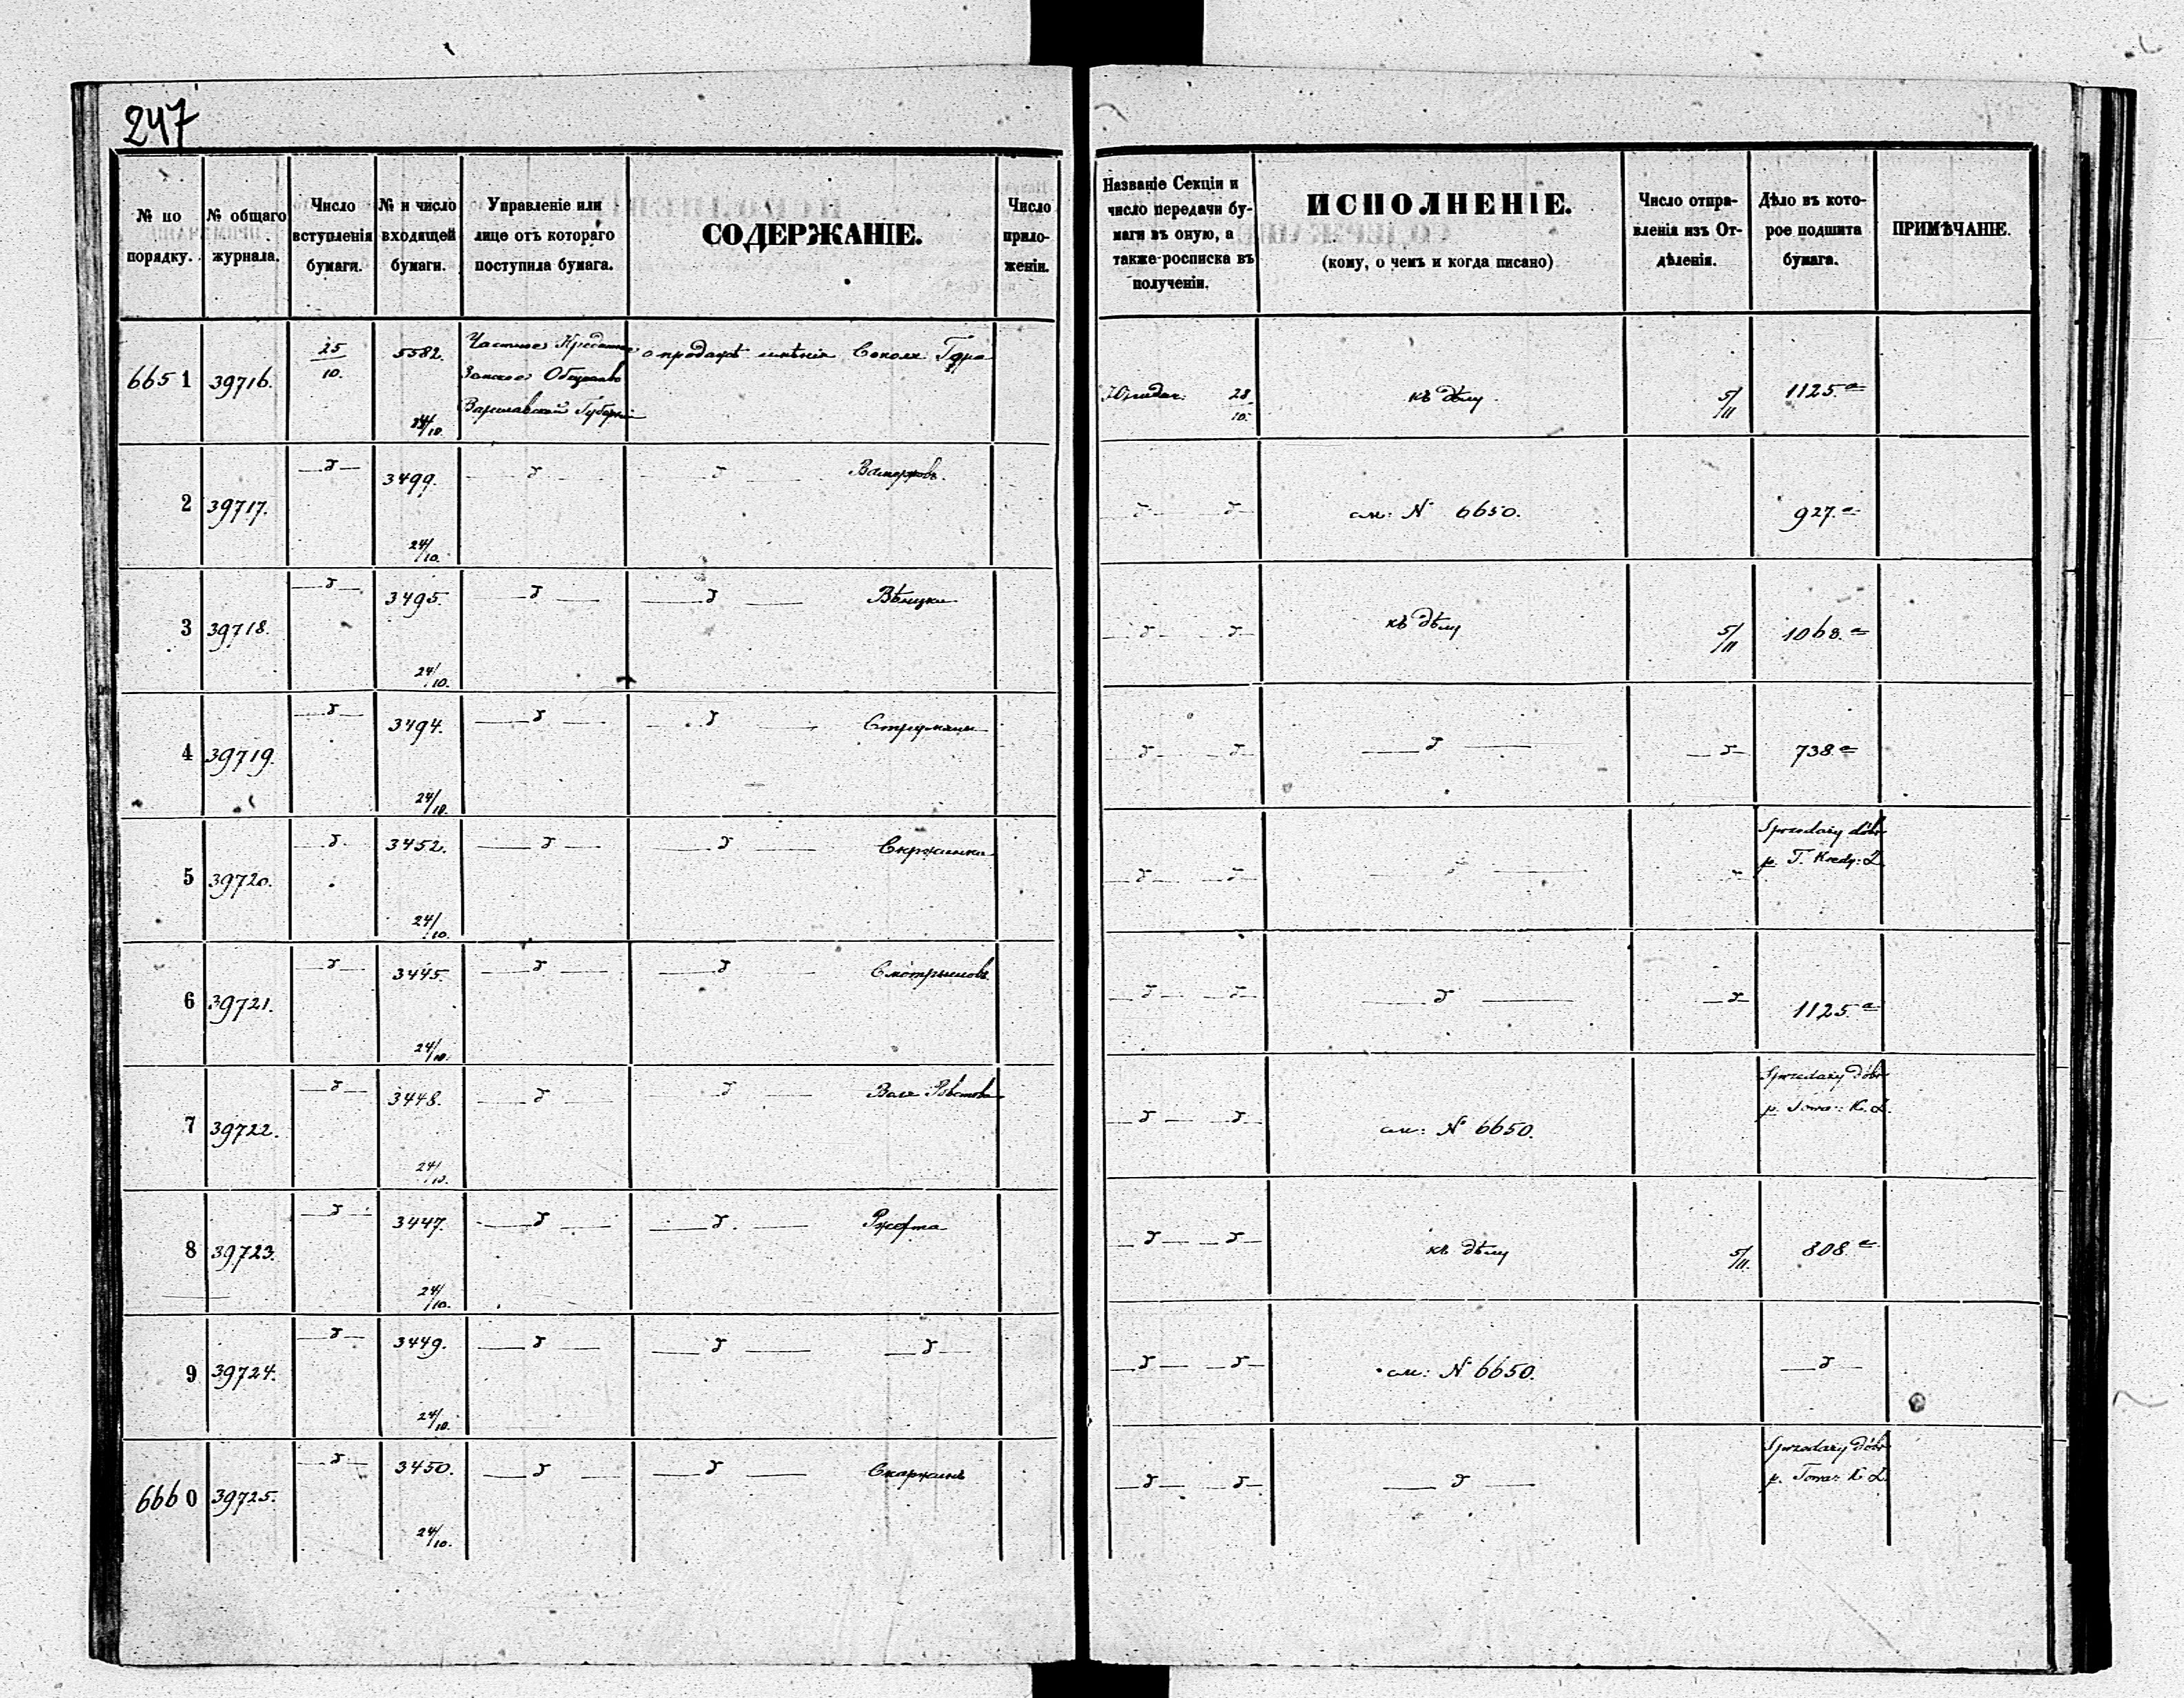 247
№ по порядку.
№ общаго журнала.
Число вступленія бумаги.
№ и число входящей бумаги.
Управленіе или лице отъ котораго поступила бумага.
СОДЕРЖАНІЕ.
Число приложеній.
Названіе Секціи и число передачи бумаги въ оную, а также росписка въ полученіи.
ИСПОЛНЕНІЕ.
(кому, о чемъ и когда писано)
Число отправленія изъ Отдѣленія.
Дѣло въ которое подшита бумага.
ПРИМѢЧАНІЕ.
6651 39716. 25/10. 5582. 24/10. Общество Варшавской Губерніи о продажѣ имѣнія 28/10. къ дѣлу 5/11 1125.a
2 39717. –д– 3499. 24/10. –д– –д– –д– –д– см: № 6650. 927.a
3 39718. –д– 3495. 24/10. –д– –д– –д– –д– къ дѣлу 5/11 1068.a
4 39719. –д– 3494. 24/10. –д– –д– –д– –д– –д– –д– 738.a
5 39720. –д– 3452. 24/10. –д– –д– –д– –д– –д– –д– Sprzedaży dóbr p. T. Kredy: Z.
6 39721. –д– 3445. 24/10. –д– –д– –д– –д– –д– –д– 1125.a
7 39722. –д– 3448. 24/10. –д– –д– –д– –д– см: № 6650. Sprzedaży dóbr p. Towa: K. Z.
8 39723. –д– 3447. 24/10. –д– –д– –д– –д– къ дѣлу 5/11. 808.a
9 39724. –д– 3449. 24/10. –д– –д– –д– –д– –д– см: № 6650. –д–
6660 39725. –д– 3450. 24/10. –д– –д– –д– –д– –д– Sprzedaży dóbr p. Towa: K. Z.